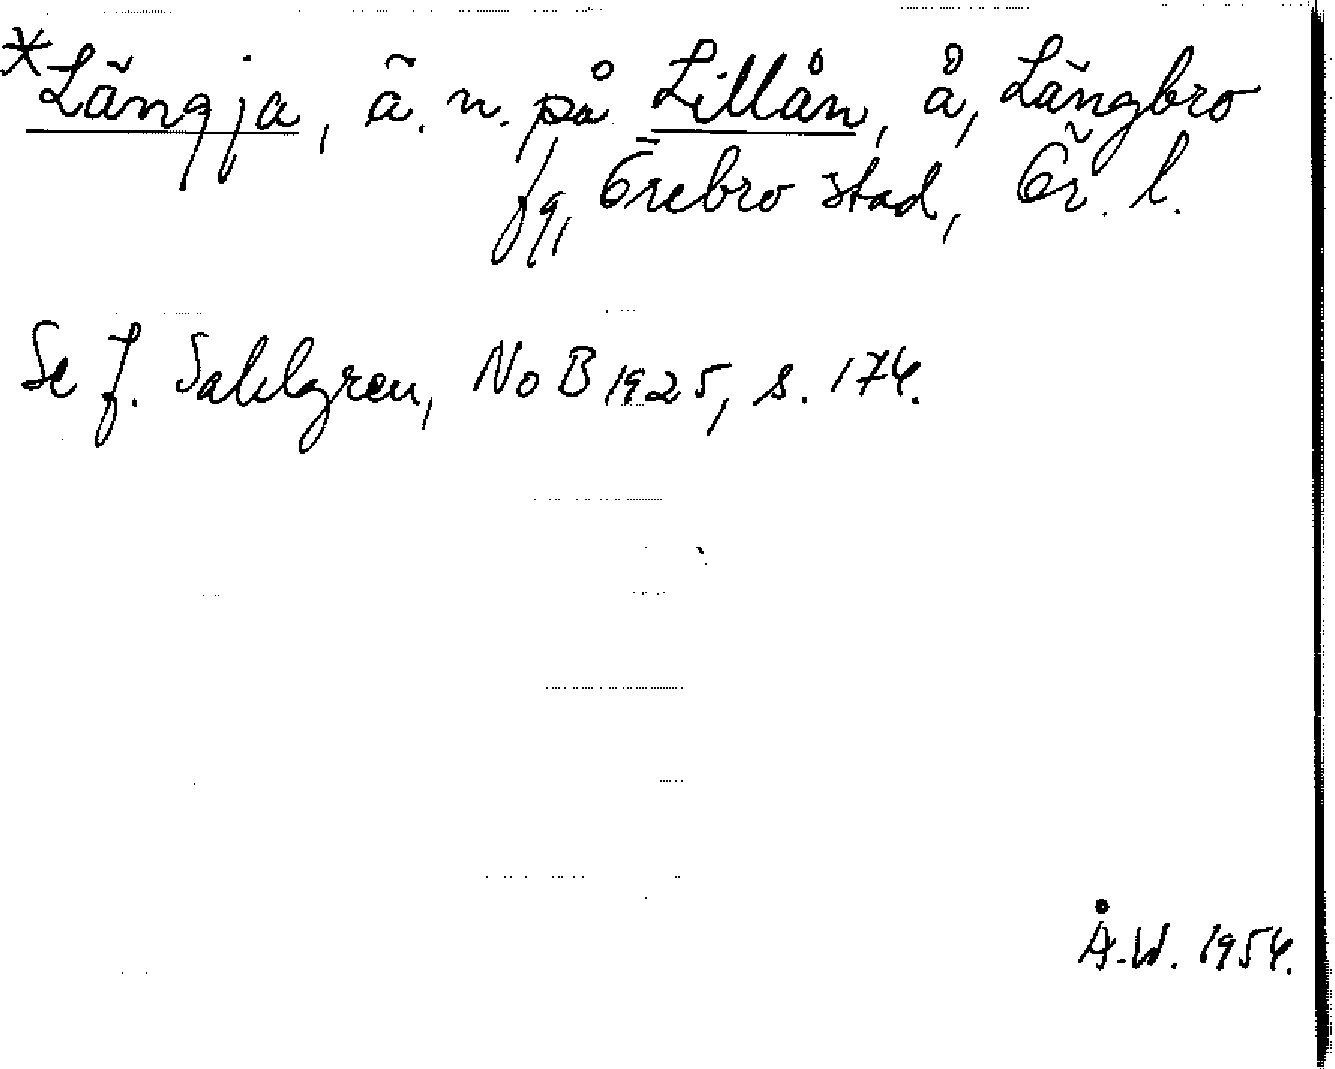 *Längja, ä. n. på Lillån, å, Längbro
fg, Örebro stad, Ör. l.
Se J. Sahlgren, NoB 1925, s. 174.
Å.W. 1954.